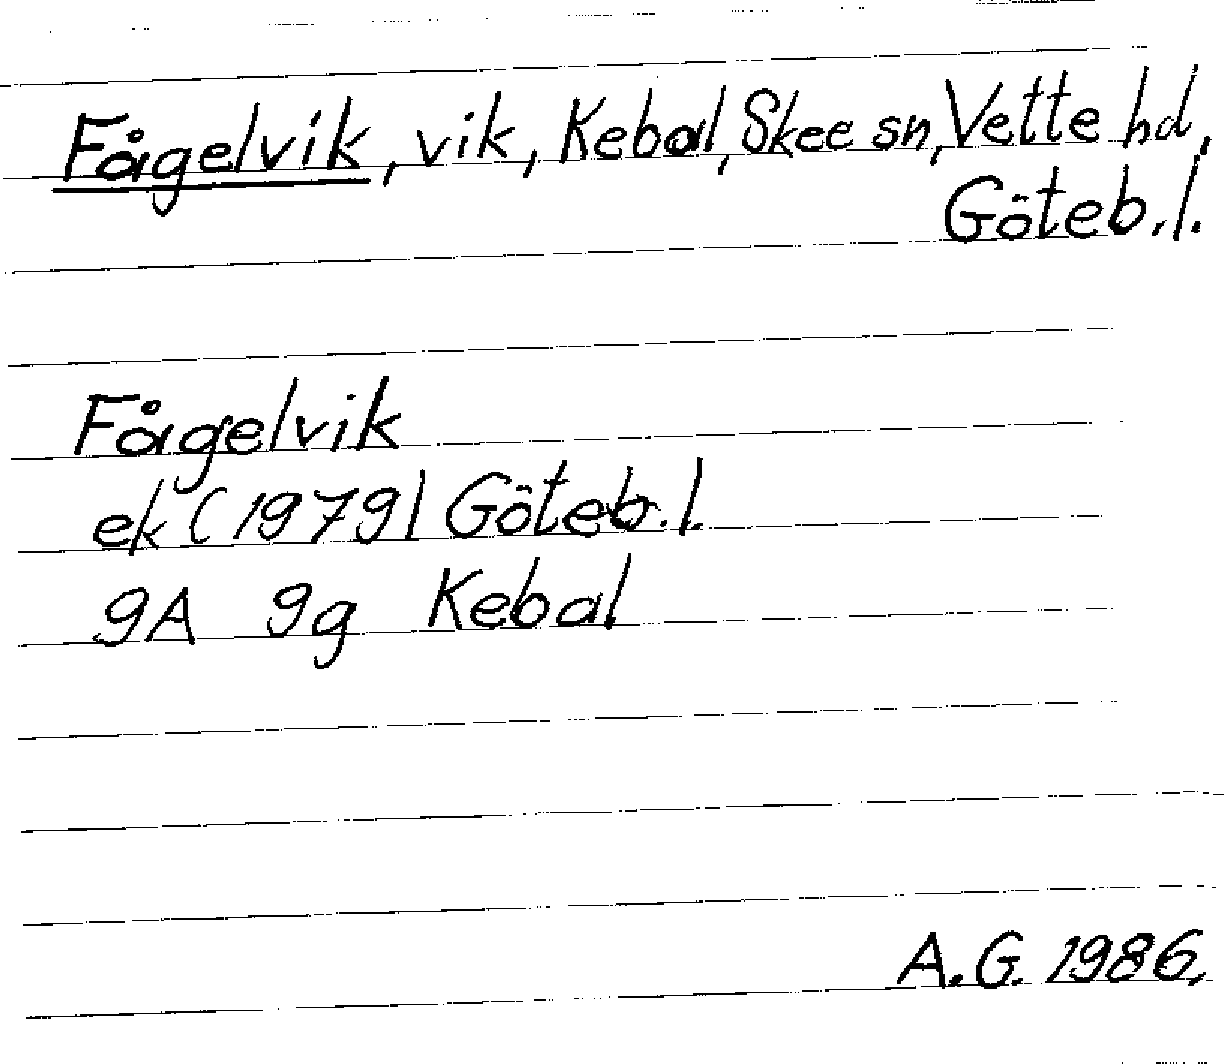 Fågelvik, vik, Kebal, Skee sn, Vette hd,
Göteb. l.
Fågelvik
ek (1979) Göteb. l.
9A 9g Kebal
A.G. 1986.